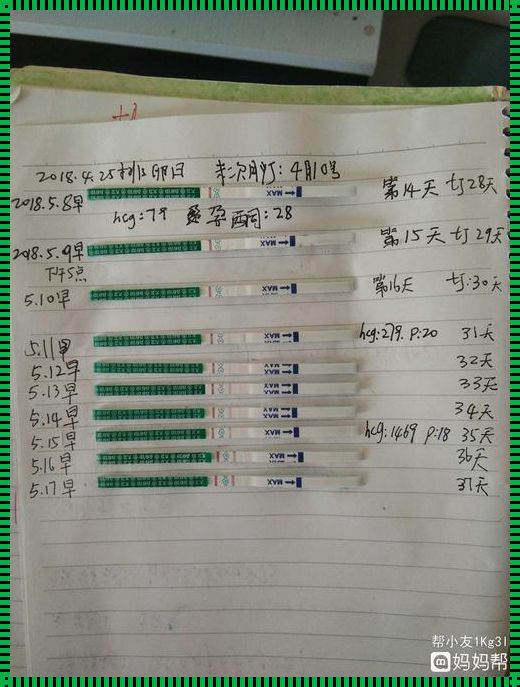 2018.4.25排卵日 末次月经:4月10号
2018.5.8早 MAX 第14天 tj28天
hcg:79 孕酮:28
2018.5.9早 MAX 第15天 tj29天
下午5点
5.10早 MAX 第16天 tj:30天
5.11早 MAX hcg:279. P:20 31天
5.12早 MAX 32天
5.13早 MAX 33天
5.14早 MAX 34天
5.15早 MAX hcg:1469 P:18 35天
5.16早 MAX 36天
5.17早 MAX 37天
帮小友1Kg3I
妈妈帮